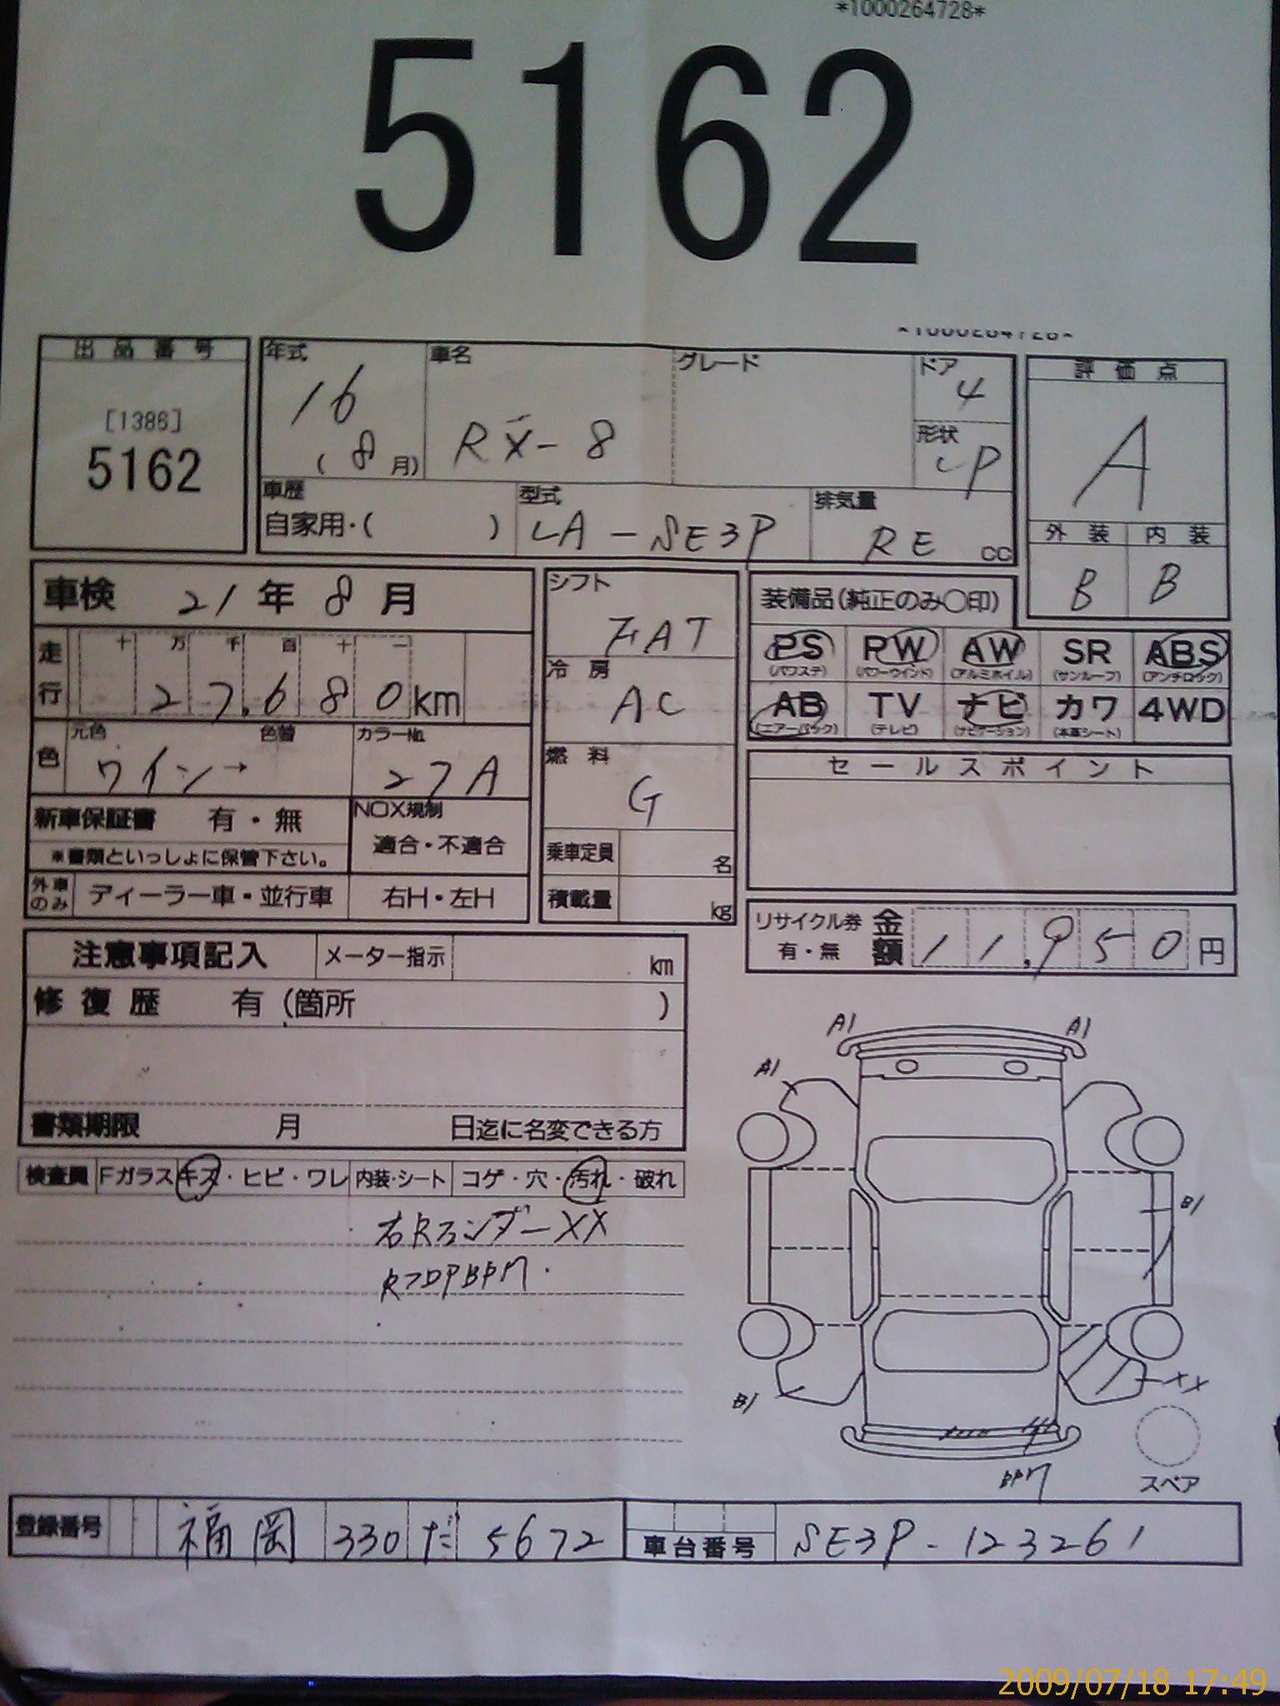 *1000264728*
5162
*1000264728*
出品番号
[1386]
5162
年式
16
(8月)
車名
RX-8
グレード
ドア
4
形状
CP
車歴
自家用・( )
型式
LA-SE3P
排気量
RE cc
評価点
A
外装 内装
B B
車検 21年 8月
走行
十 万 千 百 十 一
27,680km
色
元色 色替
ワイン→
カラーNo.
27A
新車保証書 有・無
※書類といっしょに保管下さい。
NOX規制
適合・不適合
外車のみ ディーラー車・並行車 右H・左H
シフト
FAT
冷房
AC
燃料
G
乗車定員 名
積載量 kg
装備品(純正のみ○印)
PS PW AW SR ABS
(パワステ) (パワーウインド) (アルミホイル) (サンルーフ) (アンチロック)
AB TV ナビ カワ 4WD
(エアーバック) (テレビ) (ナビゲーション) (本革シート)
セールスポイント
リサイクル券
有・無
金額 11,950円
注意事項記入 メーター指示 km
修復歴 有(箇所 )
書類期限 月 日迄に名変できる方
検査員 Fガラス キズ・ヒビ・ワレ 内装・シート コゲ・穴・汚れ・破れ
右Rフェンダー XX
A1 A1
A1
B1
B1
XX
スペア
登録番号 福岡 330 だ 5672
車台番号 SE3P-123261
2009/07/18 17:49